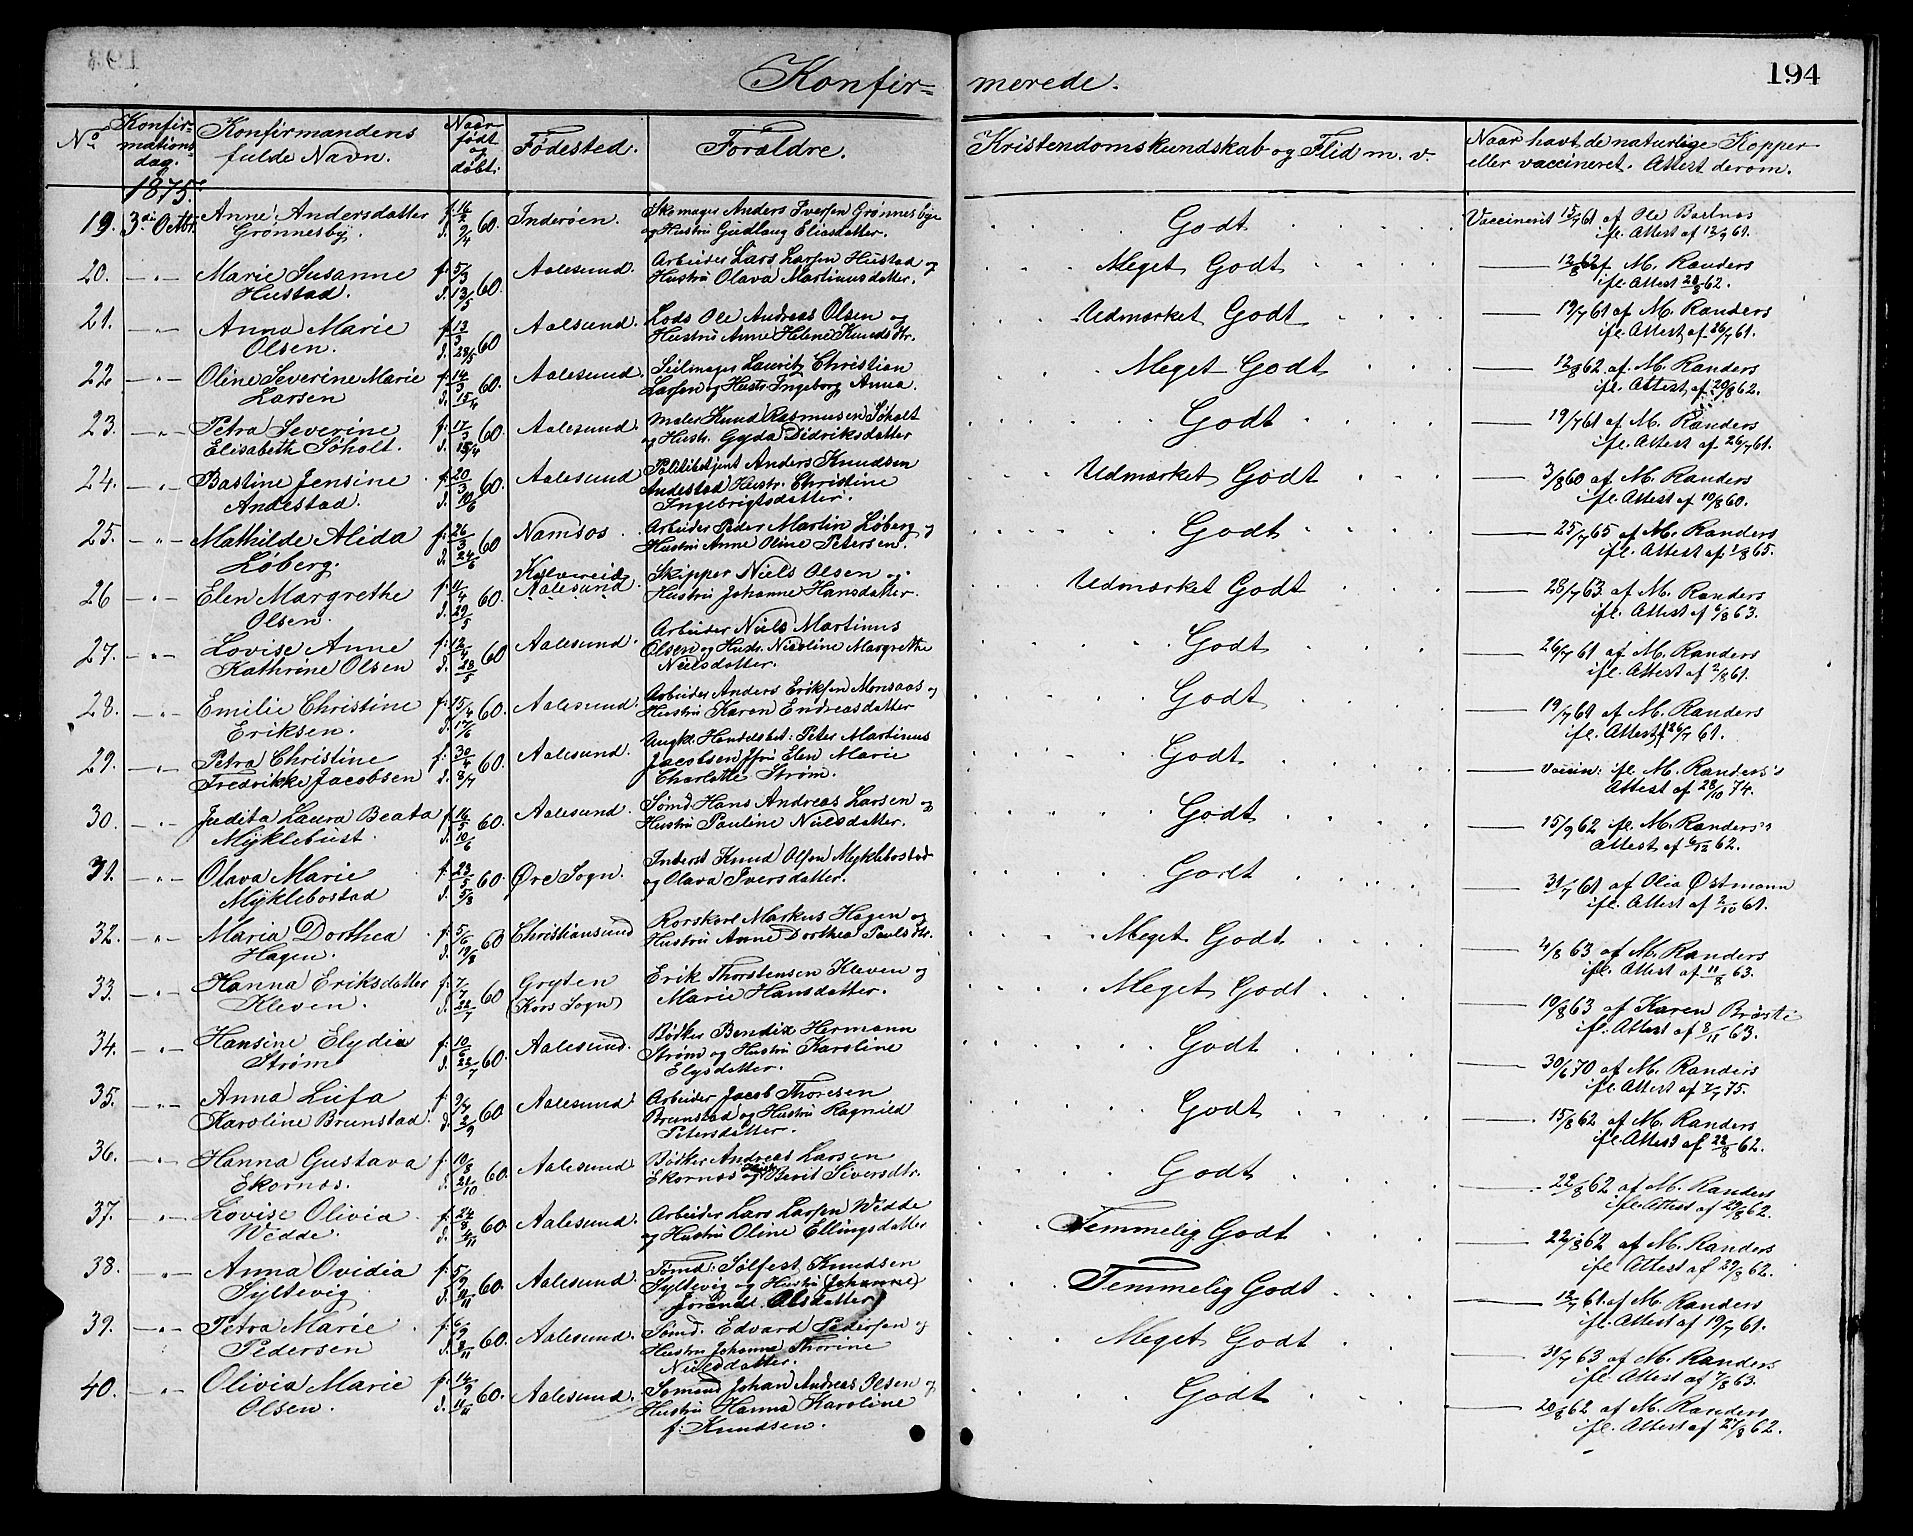 194
Konfir= merede.
No Konfir= mations dag. Konfirmandens fulde Navn. Naar født og døbt. Fødested. Forældre. Kristendomskundskab og Flid m. v. Naar havt de naturlige Kopper eller vaccineret. Attest derom.
1875.
19. 3die Octbr. Anne Andersdatter f. 16/2 60. Inderøen. Skomager Anders Iversen Grønnesbye Godt Vaccineret 15/7 61 af Ole Bartnas
Grønnesby. d. 9/4 og Hustru Gudlaug Eliasdatter. ifl. Attest af 12/9 61.
20. —"— Marie Susanne f. 5/3 60. Aalesund. Arbeider Lars Larsen Hustad og Meget Godt — 12/8 62 af M. Randers
Hustad. d. 13/5 Hustru Olava Martinusdatter. ifl. Attest 20/8 62.
21. —"— Anna Marie f. 13/3 60 Aalesund. Lods Ole Andreas Olsen og Udmærket Godt — 19/7 61 af M. Randers
Olsen. d. 28/5 Hustru Anne Helene Knudsdtr. ifl. Attest af 26/7 61.
22 —"— Oline Severine Marie f. 14/3 60. Aalesund. Seilmager Lauritz Christian Meget Godt — 12/8 62. af M. Randers
Larsen d. 15/4 Larsen og Hustr. Ingeborg Anna. ifl. Attest af 20/8 62.
23. —"— Petra Severine f. 17/3 60. Aalesund. Maler Knud Rasmusen Søholt Godt — 19/7 61 af M. Randers
Elisabeth Søholt. d. 15/4 og Hustr. Gyda Didriksdatter ifl. Attest af 26/7 61.
24. —"— Bastine Jensine f. 20/3 60. Aalesund Politibetjent Anders Knudsen Udmærket Godt — 3/8 60 af M. Randers
Andestad. d. 10/6 Andestad Hustr. Christine ifl. Attest af 10/8 60.
Ingebrigtsdatter.
25. —"— Mathilde Alida f. 26/3 60 Namsos Arbeider Peder Martin Løberg og Godt — 25/7 65 af M. Randers
Løberg. d. 24/6 Hustru Anne Oline Petersen. ifl. Attest af 1/8 65.
26 —"— Elen Margrethe f. 11/4 60. Kolvereid Aalesund. Skipper Niels Olsen og Udmærket Godt — 28/7 63. af M. Randers
Olsen. d. 29/5 Hustru Johanne Hansdatter. ifl. Attest af 6/8 63.
27. —"— Lovise Anne f. 12/4 60 Aalesund. Arbeider Niels Martinus Godt — 26/7 61 af M. Randers
Kathrine Olsen d. 28/5 Olsen og Hustr. Nicoline Margrethe ifl. Attest af 2/8 61.
Nielsdatter.
28. —"— Emilie Christine f. 15/4 60. Aalesund. Arbeider Anders Eriksen Monsaas og Godt — 19/7 61 af M. Randers
Eriksen. d. 17/6 Hustru Karen Endreasdatter ifl. Attest af 26/7 61.
29. —"— Petra Christine f. 30/4 60. Aalesund. Ungk. Handelsbet: Peter Martinus Godt — Vaccin: ifl. M. Randers's
Fredrikke Jacobsen d. 8/7 Jacobsen, Jfr. Elen Marie Attest af 28/10 74.
Charlotte Strøm.
30. —"— Judita Laura Beata f. 16/5 60. Aalesund. Sømd. Hans Andreas Larsen og Godt — 15/9 62 ifl. M. Randers's
Myklebust. d. 10/6 Hustru Pauline Nielsdatter. Attest af 6/12 62.
31. —"— Olava Marie f. 23/5 60. Øre Sogn. Inderst Knud Olsen Myklebostad Godt — 31/7 61 af Olia Østmann
Myklebostad d. 5/8 og Olava Iversdatter. ifl. Attest af 2/10 61.
32. —"— Maria Dorthea f. 5/6 60 Christiansund Rorskarl Markus Hagen og Meget Godt — 4/8 63 af M. Randers
Hagen. d. 19/8 Hustru Anne Dorthea Paulsdtr. ifl. Attest af 11/8 63.
33. —"— Hanna Eriksdatter f. 7/7 60 Gryten Erik Thorstensen Kleven og Meget Godt — 19/8 63 af Karen Brøste
Kleven. d. 22/7 (Kors Sogn) Marie Hansdatter. ifl. Attest af 8/11 63.
34. —"— Hansine Elydia f. 10/6 60. Aalesund. Bødker Bendix Hermann Godt — 30/6 70 af M. Randers
Strøm d. 22/7 Strøm og Hustru Karoline ifl. Attest af 7/7 75.
Elysdatter.
35. —"— Anna Lufa f. 9/7 60 Aalesund. Arbeider Jacob Thoresen Godt — 15/8 62 af M. Randers
Karoline Brunstad. d. 2/9 Brunstad og Hustru Ragnild ifl. Attest af 22/8 62.
Petersdatter.
36. —"— Hanna Gustava f. 10/8 60. Aalesund Bødker Andreas Larsen Godt — 22/8 62 af M. Randers
Ekornæs. d. 21/10 Ekornæs og Hustr. Berit Siversdtr. ifl. Attest af 29/8 62.
37. —"— Lovise Olivia f. 24/8 60. Aalesund. Arbeider Lars Larsen Wedde Temmelig Godt — 22/8 62 af M. Randers
Wedde. d. 4/11 og Hustru Oline Ellingsdatter ifl. Attest af 29/8 62.
38. —"— Anna Ovidia f. 5/9 60. Aalesund. Tømd: Sølfest Knudsen Temmelig Godt — 12/7 61. af M. Randers
Syltevig d. 11/11 Syltevig og Hustru (Johanne) ifl. Attest af 19/7 61.
Jorande Olsdatter
39. —"— Petra Marie f. 6/9 60. Aalesund. Tømd. Edvard Pedersen og Meget Godt — 31/7 63 af M. Randers
Pedersen d. 2/11 Hustru Johanna Thorine ifl. Attest af 7/8 63.
Nielsdatter.
40. —"— Olivia Marie f. 14/9 60. Aalesund. Sømand Johan Andreas Olsen og Godt — 20/8 62 af M. Randers
Olsen. d. 11/11 Hustru Hanna Karoline ifl. Attest af 27/8 62.
f. Knudsen.